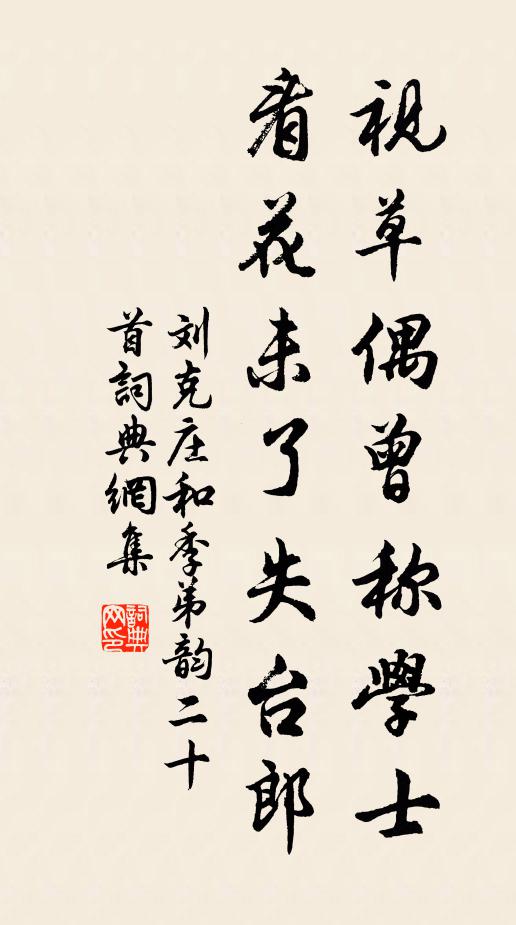 視草偶曾称學士
看花未了失台郎
刘克庄和季弟韵二十
首詞典網集
詞典网印